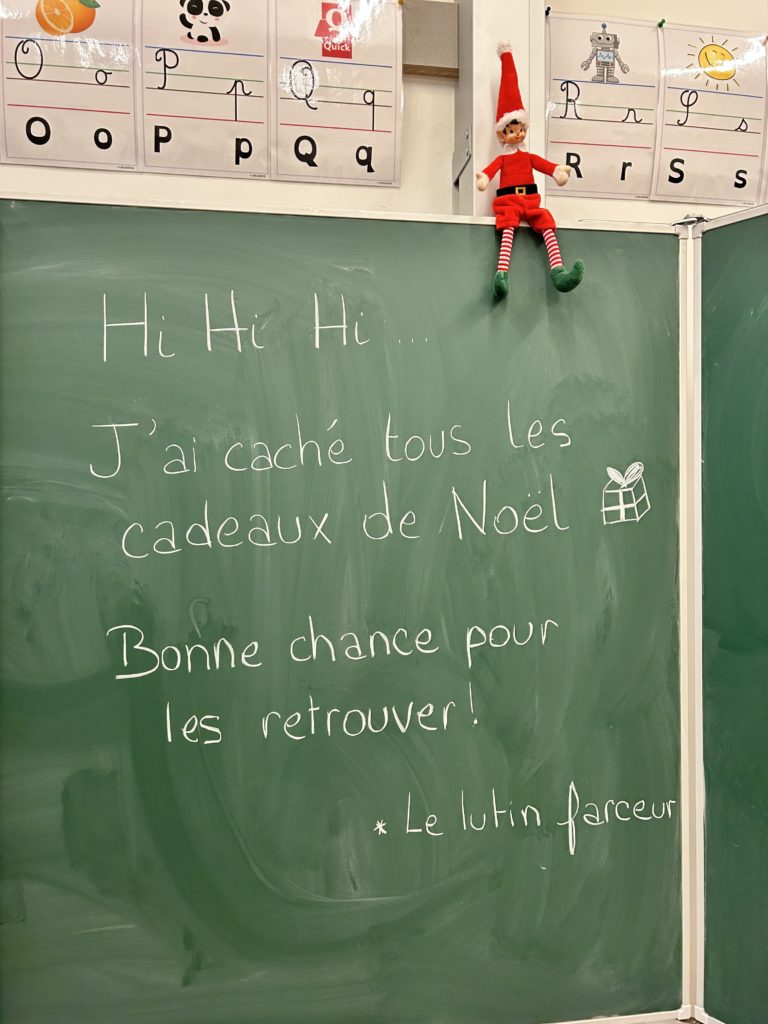 O o P p Q q R r S s
Quick
O o P p Q q R r S s
Hi Hi Hi ...
J'ai caché tous les
cadeaux de Noël
Bonne chance pour
les retrouver !
* Le lutin farceur